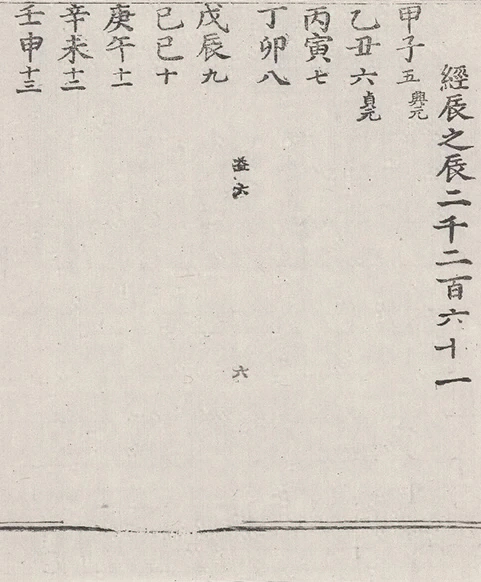 經辰之辰二千二百六十一
甲子五興元
乙丑六貞元
丙寅七
丁卯八
益六
六
戊辰九
己巳十
庚午十一
辛未十二
壬申十三